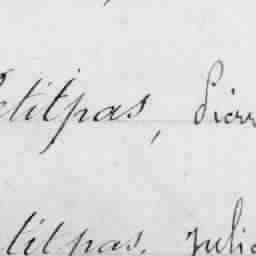 etitpas, Pierr
titpas, Julie